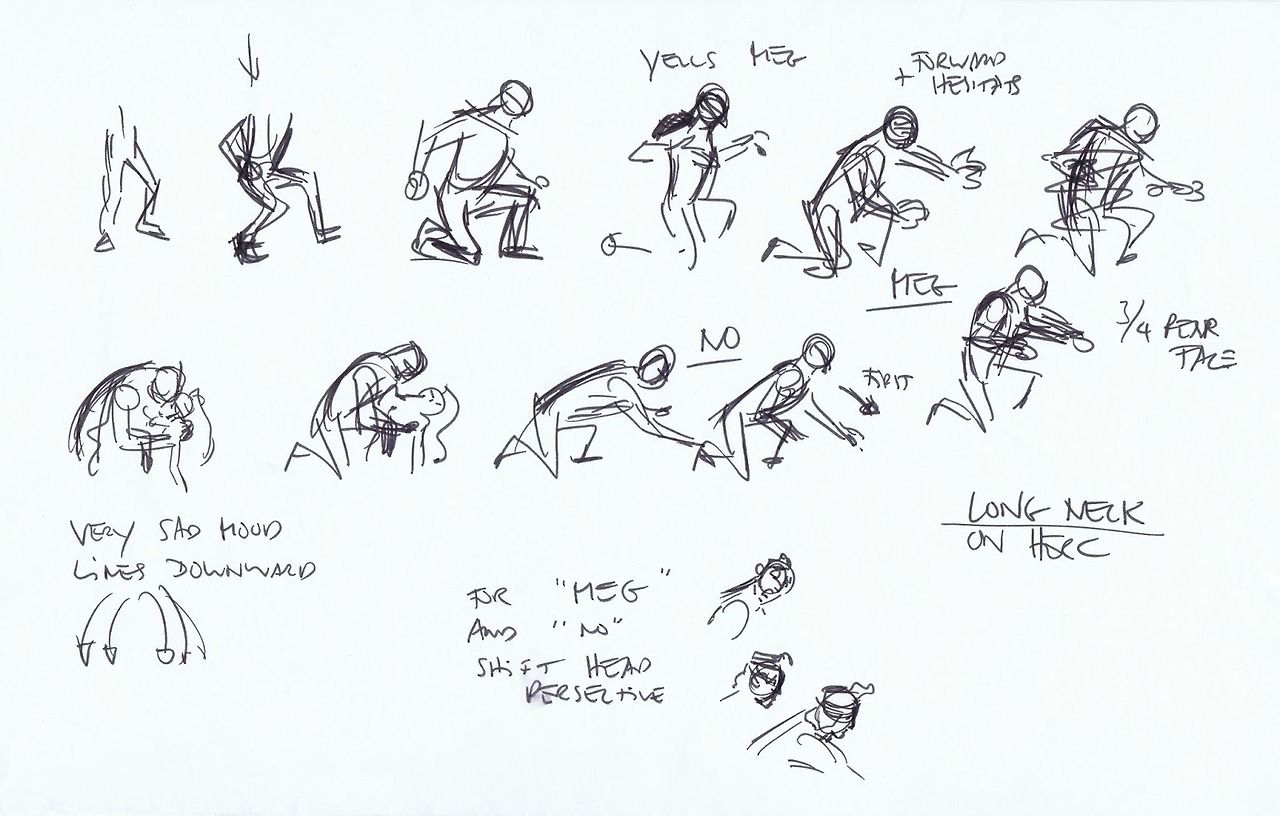 YELLS MEG
FORWARD
+ HESITATS
MEG
3/4 REAR
FACE
NO
FIRST
LONG NECK
ON HERC
VERY SAD MOOD
LINES DOWNWARD
FOR "MEG"
AND "NO"
SHIFT HEAD
PERSECTIVE